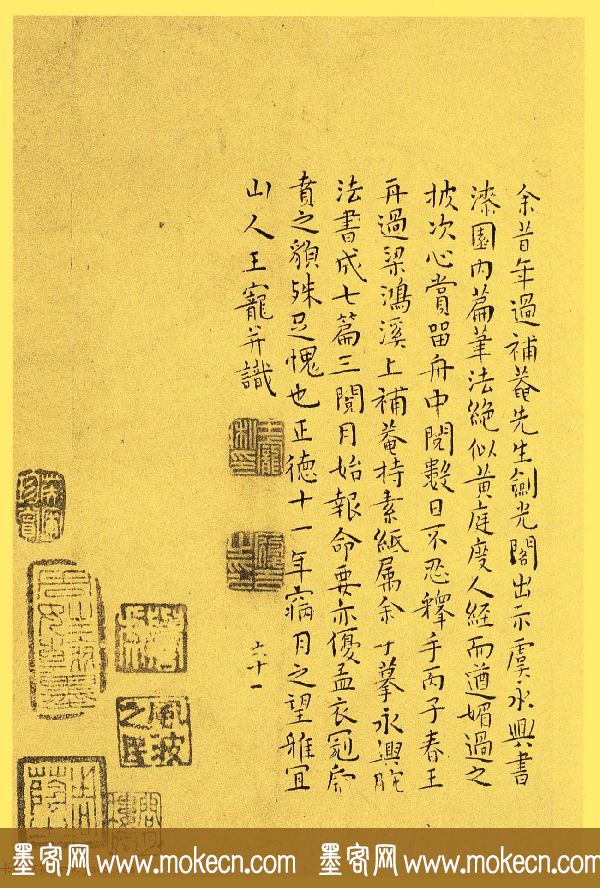 余昔年過補菴先生劍光閣出示虞永興書
漆園内篇筆法絶似黄庭度人經而遒媚過之
披次心賞留舟中閱數日不忍釋手丙子春王
再過梁鴻溪上補菴持素紙属余寸摹永興腕
法書成七篇三閱月始報命要亦優孟衣冠虎
賁之貌殊足愧也正德十一年窉月之望雅宜
山人王寵并識
六十一
王寵
風波之民
墨客网 www.mokecn.com 墨客网 www.mokecn.com